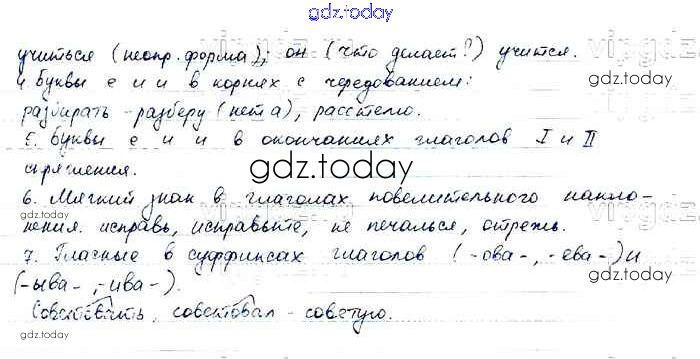 gdz.today
учиться (неопр. форма); он (что делает?) учится.
4 буквы е и и в корнях с чередованием:
gdz.today
разбирать - разберу (нет а), расстелю.
5. буквы е и и в окончаниях глаголов I и II
спряжения.
gdz.today
6. Мягкий знак в глаголах повелительного накло-
нения. исправь, исправьте, не печалься, отрежь.
gdz.today
7. Гласные в суффиксах глаголов (-ова-, -ева-) и
(-ыва-, -ива-).
gdz.today
советовал - советую.
gdz.today